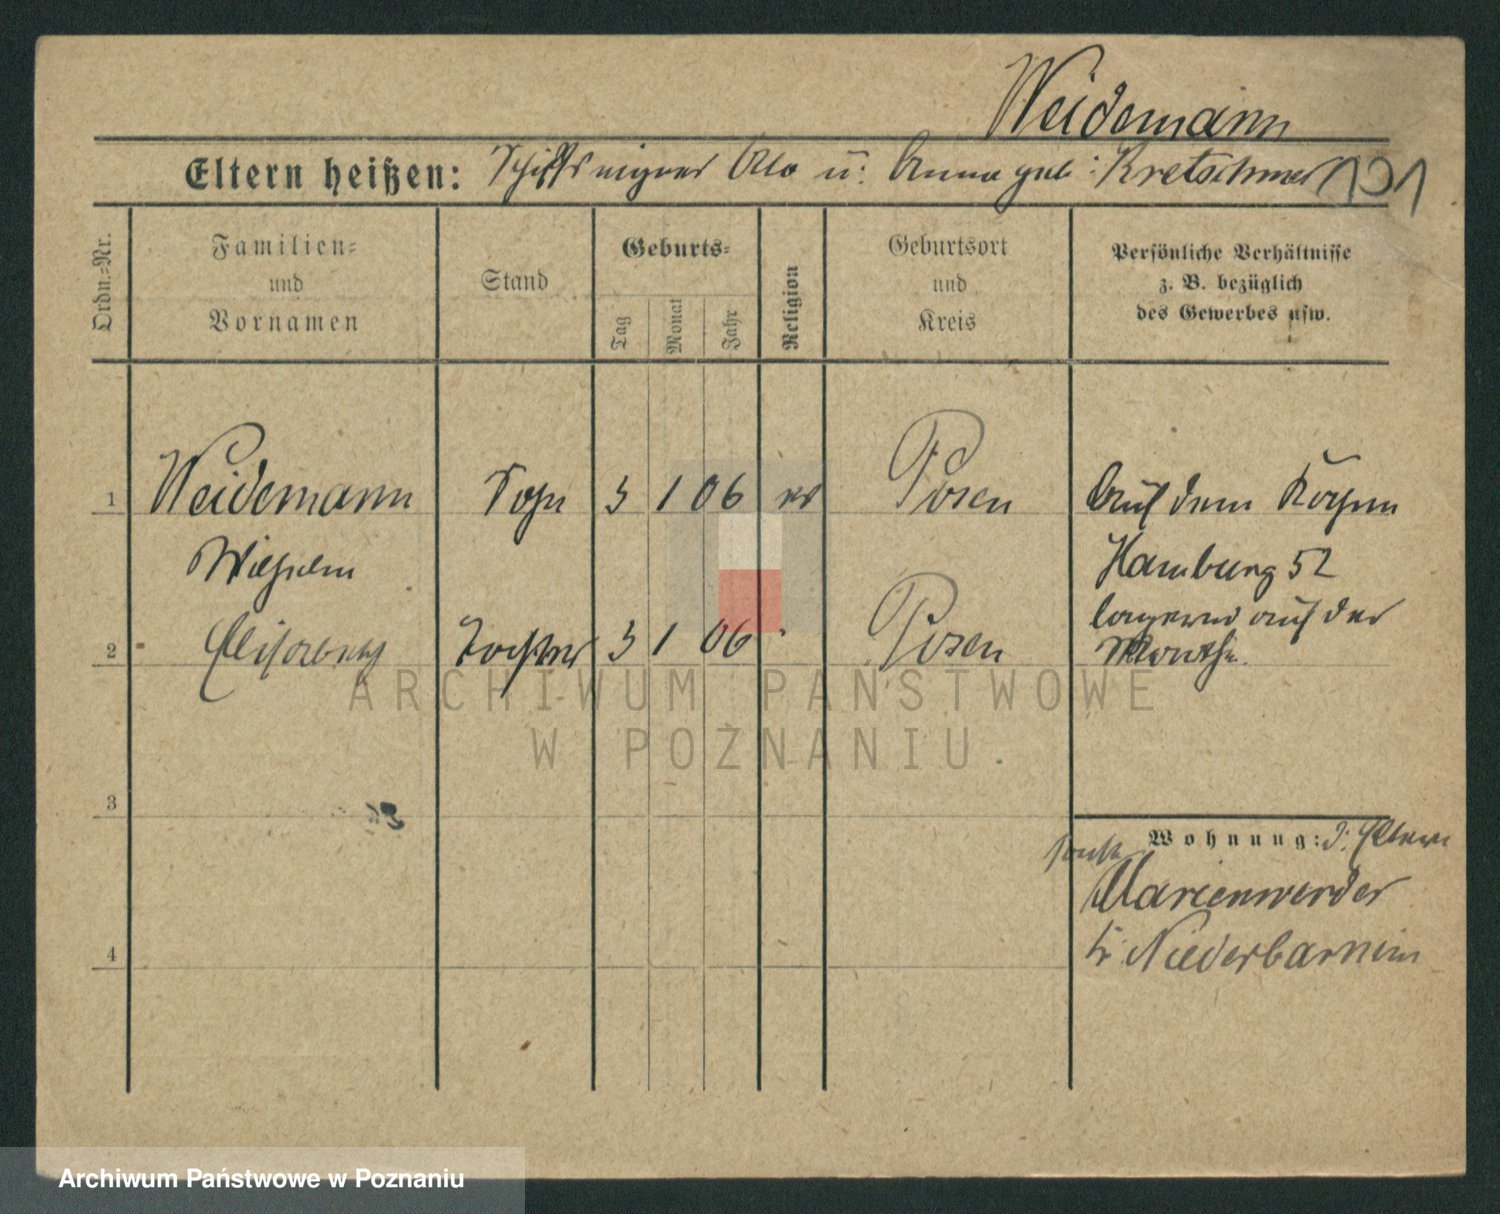 Weidemann
Eltern heißen: Schiffseigner Otto u. Anna geb. Kretschmer 131
Ordn.=Nr.
Familien=
und
Vornamen
Stand
Geburts=
Tag
Monat
Jahr
Religion
Geburtsort
und
Kreis
Persönliche Verhältnisse
z. B. bezüglich
des Gewerbes usw.
1 Weidemann Sohn 3 1 06 ev Posen Auf dem
Wilhelm
Hamburg 52
lagernd auf der
2 Elisabeth Tochter 3 1 06 " Posen Warthe.
ARCHIWUM PAŃSTWOWE
W POZNANIU.
3
Wohnung: d. Eltern
sonst
Marienwerder
Kr. Niederbarnim
4
Archiwum Państwowe w Poznaniu